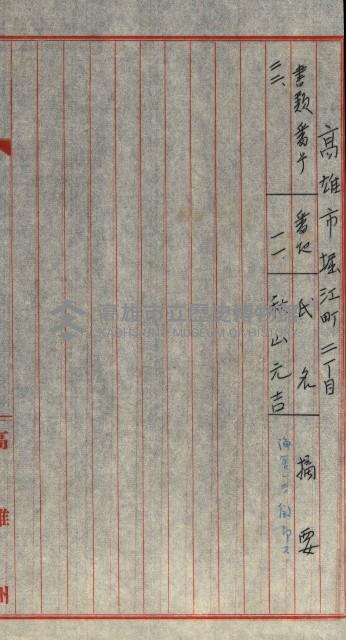 高雄市堀江町二丁目
書類番号 番地 氏名 摘要
二二、 一一 山元吉
高雄市立歷史博物館
KAOHSIUNG MUSEUM OF HISTORY
高雄州